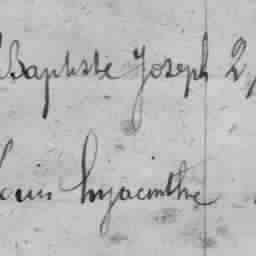 Baptiste Joseph 2
Louis hyacinthe